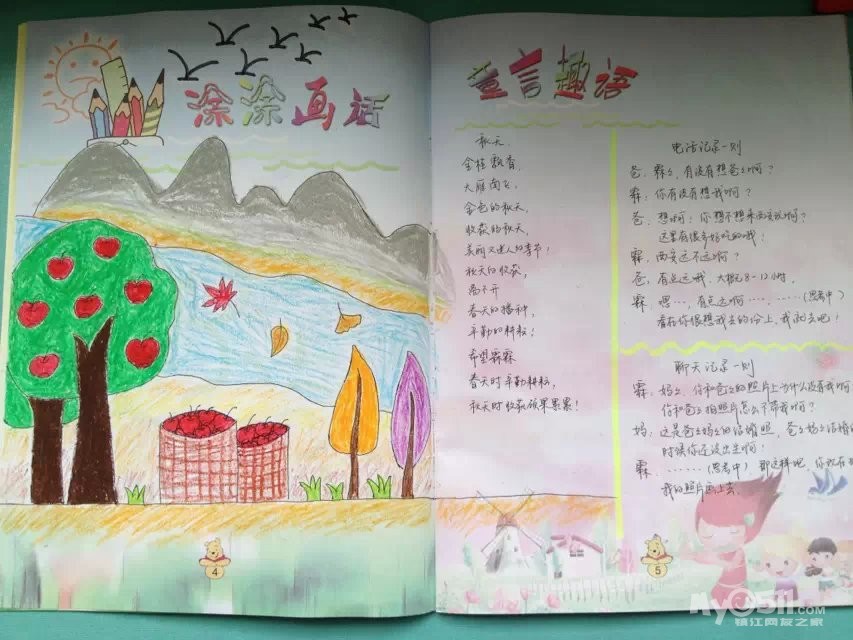 涂涂画话
4
童言趣语
秋天
金桂飘香，
大雁南飞，
金色的秋天，
收获的秋天，
美丽又迷人的季节；
秋天的收获，
离不开
春天的播种，
辛勤的耕耘；
希望霖霖
春天时辛勤耕耘，
秋天时收获硕果累累！
电话记录一则
爸：霖々，有没有想爸々啊？
霖：你有没有想我啊？
爸：想啊；你想不想来西安玩啊？
这里有很多好吃的哦！
霖：西安远不远啊？
爸：有点远哦，大概8-12小时。
霖：嗯…，有点远啊……，……（思考中）
看在你很想我去的份上，我就去吧！
聊天记录一则
霖：妈々，你和爸々的照片上为什么没有我啊
你和爸々拍照片怎么不带我啊？
妈：这是爸々妈々的结婚照，爸々妈々结婚
时候你还没出生啊！
霖：……（思考中）那这样吧，你现在
我的照片画上去
5
My0511.com
镇江网友之家